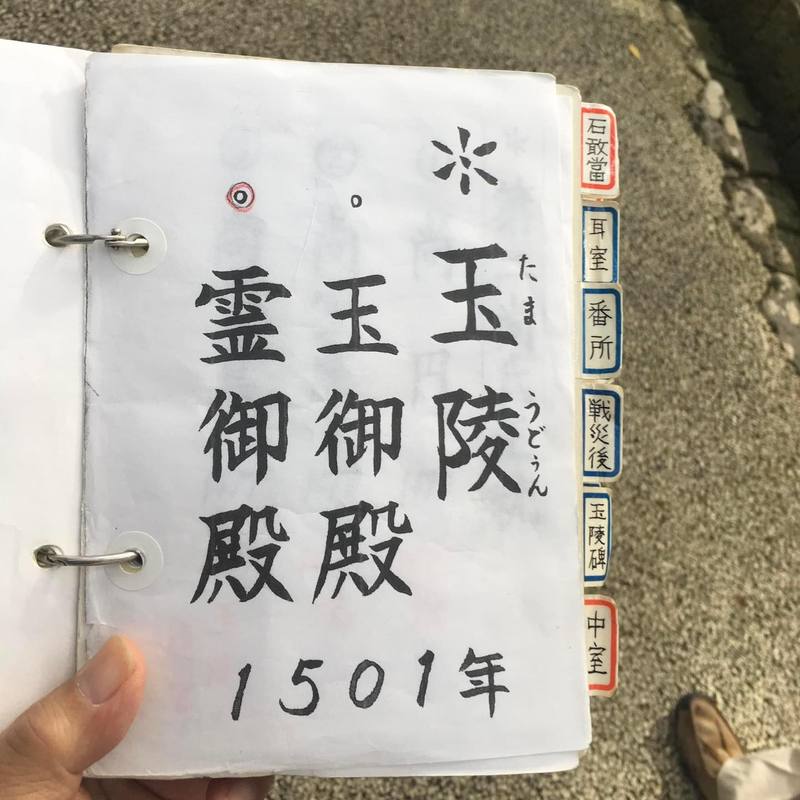 ＊玉陵
たまうどぅん
。玉御殿
◎霊御殿
1501年
石敢當
耳室
番所
戦災後
玉陵碑
中室